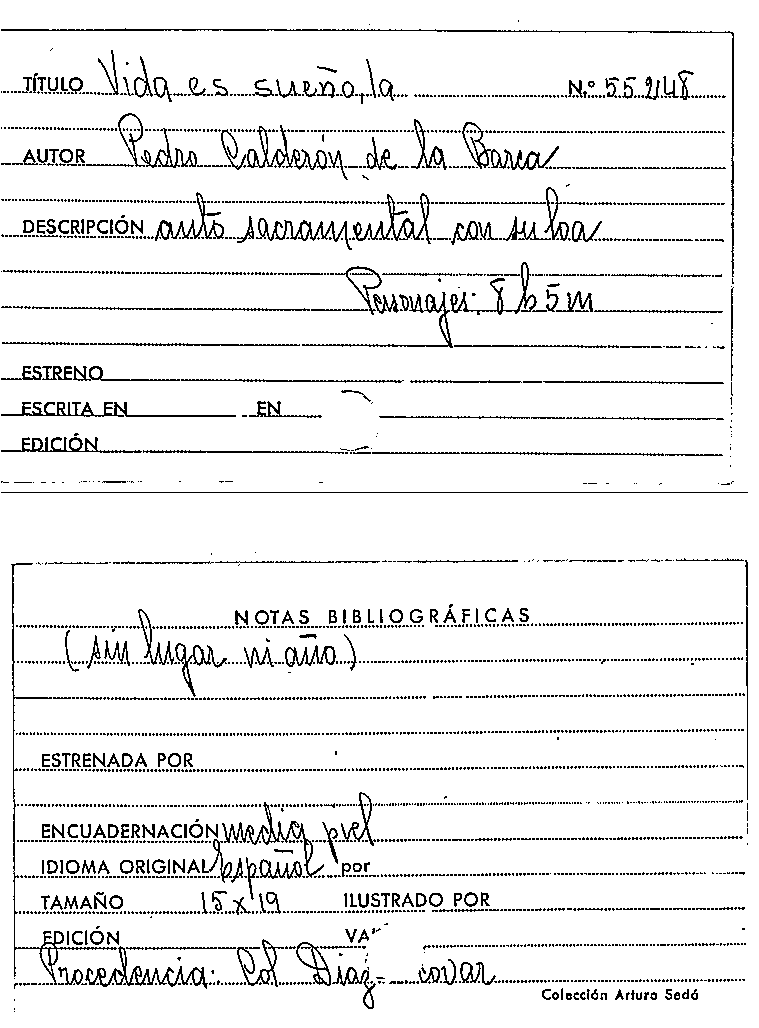 TÍTULO Vida es sueño, la N.º 55248
AUTOR Pedro Calderón de la Barca
DESCRIPCIÓN auto sacramental con su loa
Personajes: 8 h 5 m
ESTRENO
ESCRITA EN EN
EDICIÓN
NOTAS BIBLIOGRÁFICAS
(sin lugar ni año)
ESTRENADA POR
ENCUADERNACIÓN media piel
IDIOMA ORIGINAL español por
TAMAÑO 15 x 19 ILUSTRADO POR
EDICIÓN VA
Procedencia: Col Diaz-covar
Colección Arturo Sedó